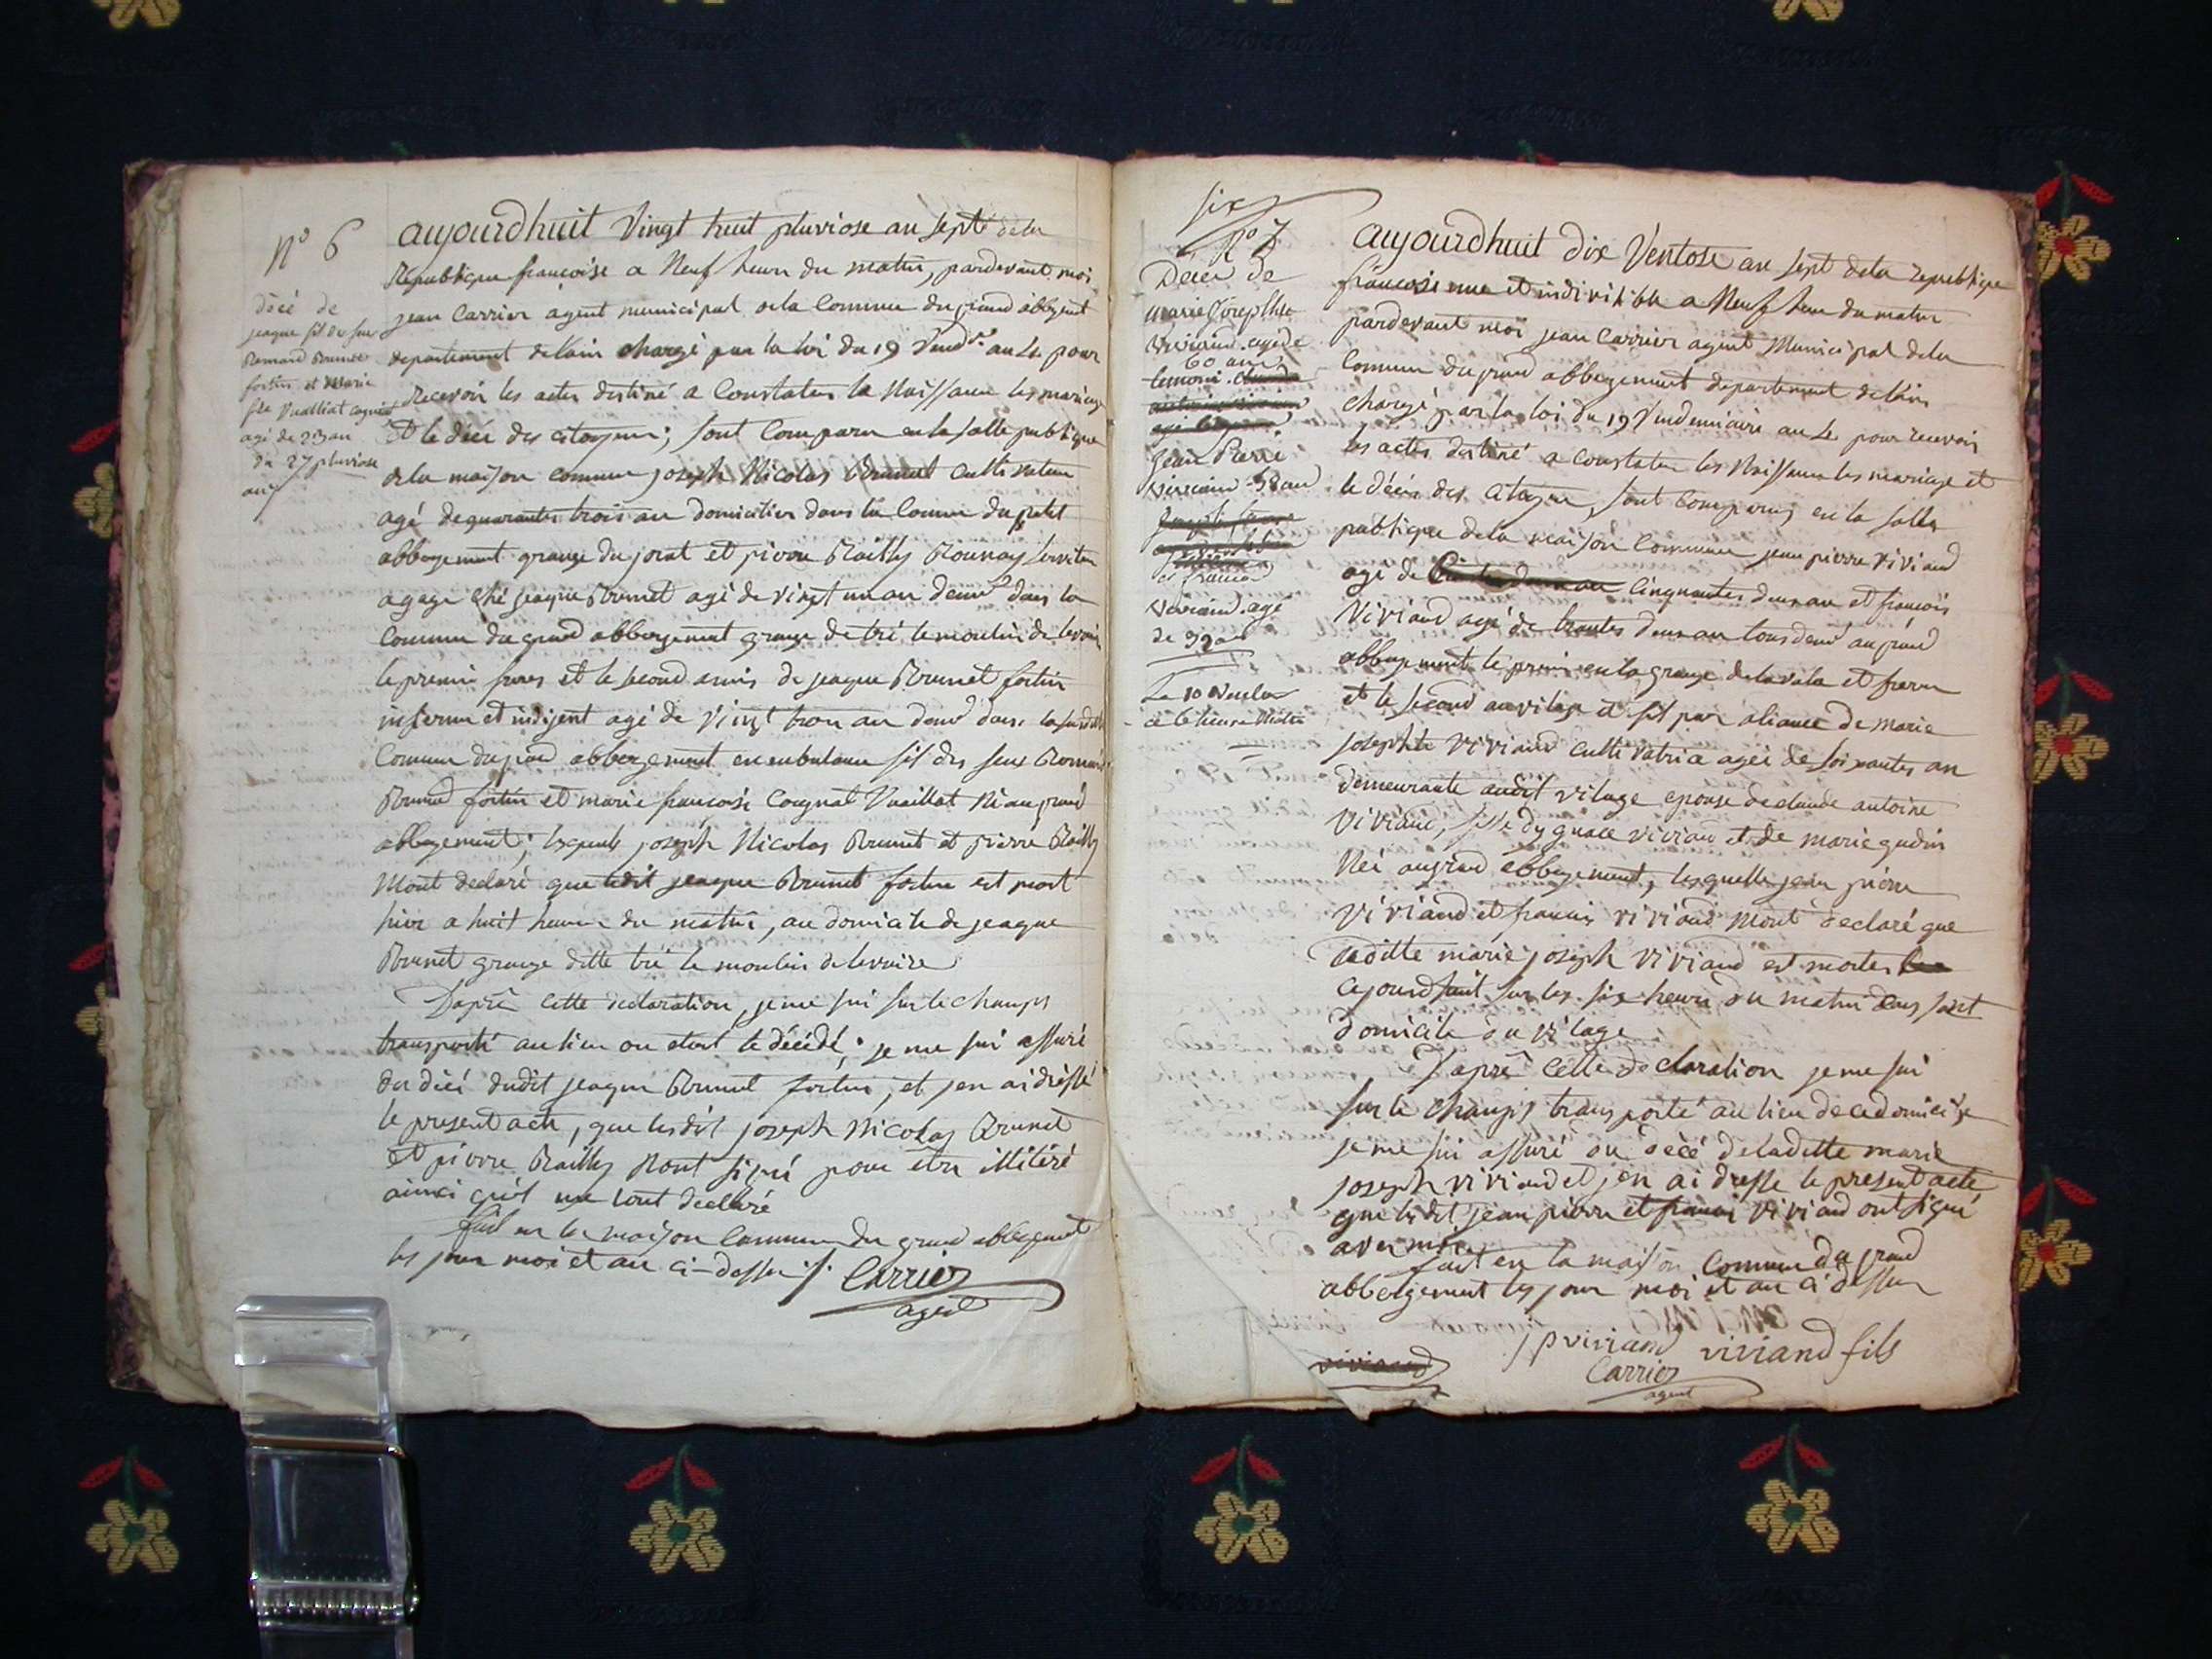 n° 6
décé de
jeaque fil de feu
Romand Brunet
fortin et Marie
fse Vuaillat cognat
agé de 23 an
du 27 pluviose
an 7
aujourdhuit Vingt huit pluviose an sept dela
Republique françoise a Neuf heure du matin, pardevant moi
jean Carrier agent municipal dela Commune du grand abbergement
departement delain chargé par la loi du 19 Vendre an 4e pour
recevoir les actes destiné a Constater la Naissance les mariage
et le décé des citoyens; sont Comparu en la salle publique
dela maison commune joseph Nicolas Brunet cultivateur
agé dequarantes trois an domicilier dans la Comune du petit
abbergement grange du jorat et pierre Bailly Rounay serviteur
agage ché jeaque Brunet agé de vingt un an demt dans la
Commune du grand abbergement grange de tré le moulin de levoire
le premier freres et le second amis de jeaque Brunet fortin
infirme et indigent agé de vingt trois an demt dans la susditte
Comune du grand abbergement en ambulance fil des feus Romand
Brunet fortin et marie françoise Cougnat Vuaillat né au grand
abbergement; lesquels joseph Nicolas Brunet et pierre Bailly
Mont declaré que ledit jeaque Brunet fortin est mort
hier a huit heure du matin, au domicile de jeaque
Brunet grange ditte tré le moulin de levoire
Daprê cette declaration, je me sui sur le champs
transporté au lieu ou etoit le décédé; je me sui assuré
du décé dudit jeaque Brunet fortin, et jen ai dressé
le present acte, que lesdit joseph Nicolas Brunet
et pierre Bailly Nont signé pour etre illitéré
ainci quil me lont declaré
fait en la maison Commune du grand abbergement
les jour moi et an ci-dessus ./. Carrier
agent
six
N° 7
Décé de
marie Josephte
Viviand agé de
60 ans
temoin
Jean Pierre
Viviand 52 an
et francois
Viviand agé
de 32 an
Le 10 Ventose
a 6 heure Matin
aujourdhuit dix Ventose an sept dela republique
françoise une et indivisible a Neuf heure du matin
pardevant moi jean Carrier agent Municipal dela
Comune du grand abbergement departement delain
chargé par la loi du 19 Vendemiaire an 4e pour recevoir
les actes destiné a constater les Naissance les mariage et
le décés des Citoyen, sont comparus en la salle
publique dela maison Commune jean pierre viviand
agé de cinquantes deux an et françois
Viviand agé de trantes deux an tous demt au grand
abbergement le premier en la grange dela vala et frere
et le second au vilage et fil par aliance de marie
josephte Viviand cultivatrice agée de soixantes an
demeurante audit vilage epouse de claude antoine
Viviand, fille dygnace viviand et de marie gudin
Née au grand abbergement, lesquelle jean pierre
viviand et francois viviand Mont declaré que
laditte marie joseph viviand est mortes
cejourdhuit sur les six heure du matin dans sont
domicile du vilage
Daprê cette declaration je me sui
sur le champs transporté au lieu de ce domicile
je me sui assuré du décé deladitte marie
joseph viviand et jen ai dressé le present acte
que lesdit jean pierre et francois viviand ont signé
avec moi
fait en la maison Commune du grand
abbergement les jour moi et an ci dessus
jp viviand viviand fils
viviand
Carrier
agent